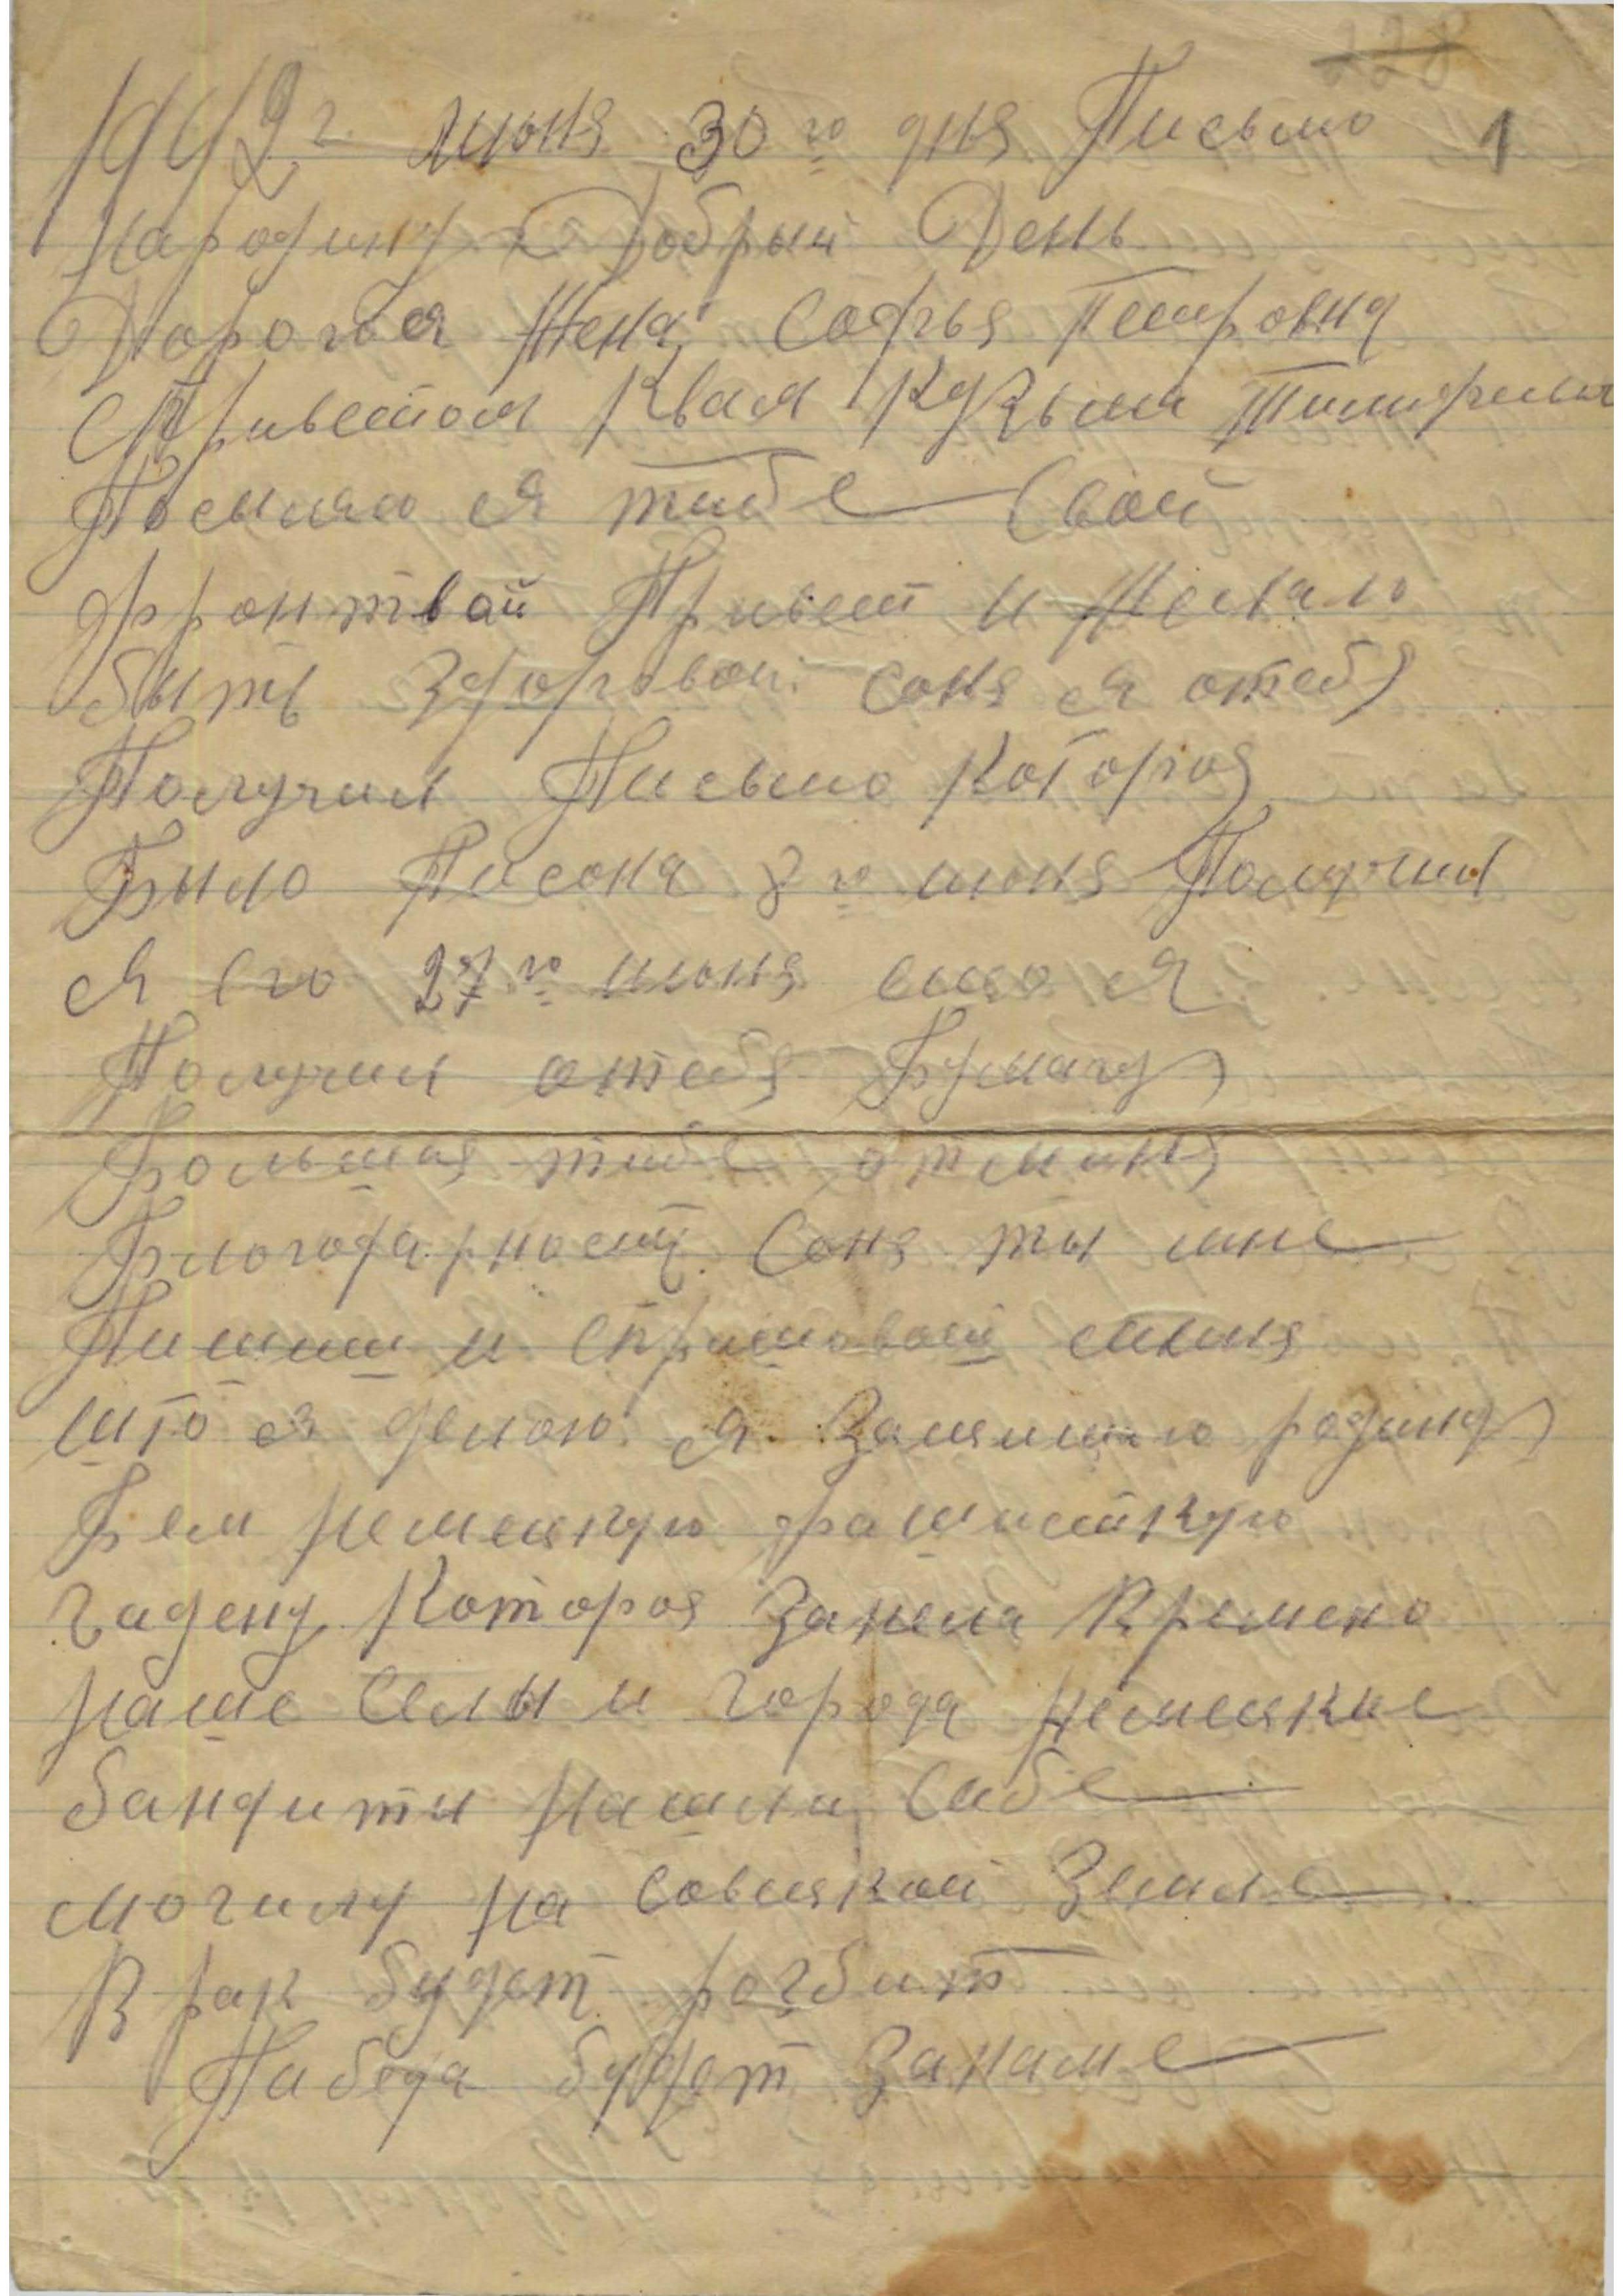 228
1942 г. июня 30 го дня Письмо 1
народину Добрый День
Дорогоя Жена Софья Петровна
С Приветом Квам Кузьма
Посылаю я тибе Свой
фронтвой Привет и Желаю
быть Здоровой. Соня я отебя
Получил Письмо Котороя
Было Писона 8 го июня Получил
я его 27 го июня ищо я
Получил отебя Бумагу
Большая тибе отминя
Блогодарность Соня ты мне
Пишиш и Спрашоваш миня
што я делою я Защищаю родину
Бем немецкую фашисткую
гадену Котороя Занела Времено
наше Селы и города немецкие
бандиты нашли Сибе
могилу на Совецкой Земле
Врак будет розбит
Пабеда будет Занаме